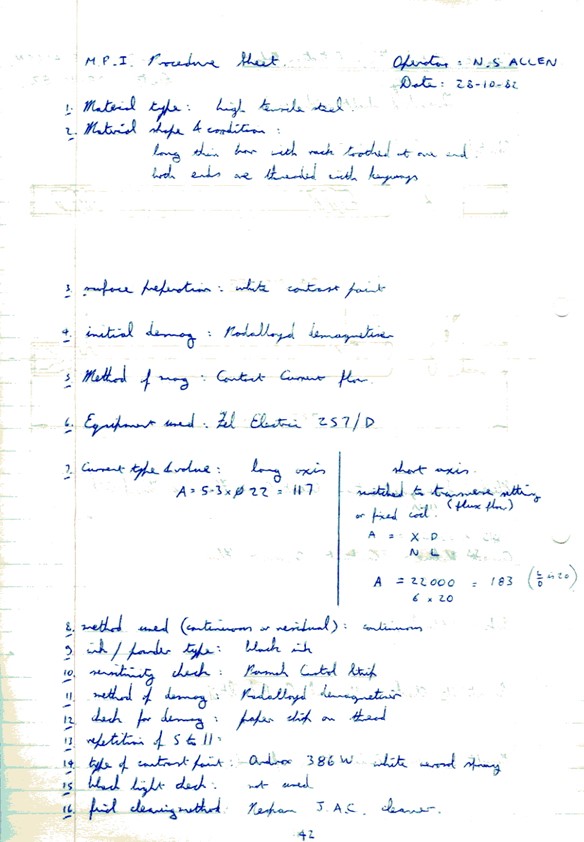 M.P.I. Procedure Sheet. Operator : N.S ALLEN
Date : 28-10-82
1. Material type : high tensile steel.
2. Material shape & condition :
long thin bar with rack toothed at one end
both ends are threaded with keyways
3. surface preparation : white contrast paint
4. initial demag : Rodalloyd demagnetiser
5. Method of mag : Contact Current flow.
6. Equipment used : Fel Electric 257/D
7. Current type & value : long axis
A = 5.3 x Ø 22 = 117
short axis.
switched to transverse setting
(flux flow)
or fixed coil.
A = X D
N L
A = 22000 = 183 (L/D is 20)
6 x 20
8. method used (continuous or residual) : continuous
9. ink / powder type : black ink
10. sensitivity check : Control Strip
11. method of demag : Rodalloyd demagnetiser
12. check for demag : paper clip on thread
13. repetition of 5 to 11 :
14. type of contrast paint : Ardrox 386W white aerosol spray
15. black light check : not used
16. final cleaning method : J.A.C. cleaner.
42